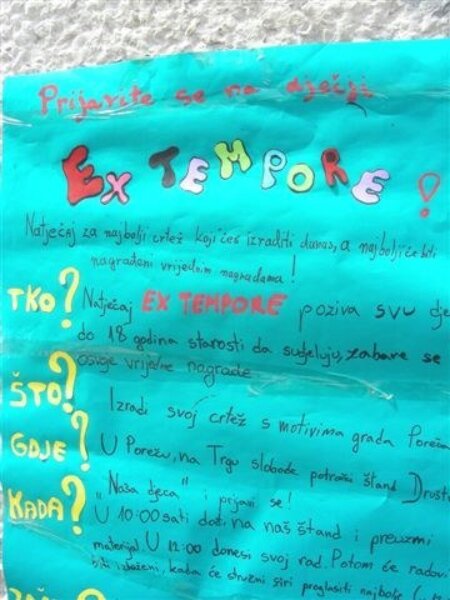 Prijavite se na dječji
EX TEMPORE!
Natječaj za najbolji crtež koji ćeš izraditi danas, a najbolji će biti
nagrađeni vrijednim nagradama!
TKO? Natječaj EX TEMPORE poziva svu dje
do 18 godina starosti da sudjeluju, zabave se
osvoje vrijedne nagrade
ŠTO? Izradi svoj crtež s motivima grada Poreča
GDJE? U Poreču, na Trgu slobode potraži štand Društ
„Naša djeca" i prijavi se!
KADA? U 10:00 sati dođi na naš štand i preuzmi
materijal. U 12:00 donesi svoj rad. Potom će radov
biti izloženi, kada će stručni žiri proglasiti najbolje